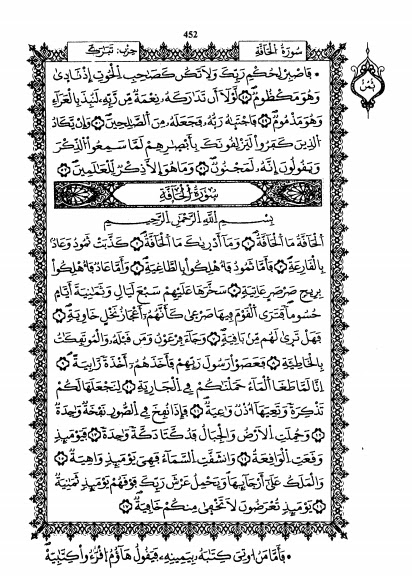 452
سُورَةُ الْحَاقَّةِ
حِزْب: تَبَارَكَ
ثُمُن
فَاصْبِرْ لِحُكْمِ رَبِّكَ وَلَا تَكُن كَصَاحِبِ الْحُوتِ إِذْ نَادَىٰ
وَهُوَ مَكْظُومٌ لَّوْلَا أَن تَدَارَكَهُ نِعْمَةٌ مِّن رَّبِّهِ لَنُبِذَ بِالْعَرَاءِ
وَهُوَ مَذْمُومٌ فَاجْتَبَاهُ رَبُّهُ فَجَعَلَهُ مِنَ الصَّالِحِينَ وَإِن يَكَادُ
الَّذِينَ كَفَرُوا لَيَزْلِقُونَكَ بِأَبْصَارِهِمْ لَمَّا سَمِعُوا الذِّكْرَ
وَيَقُولُونَ إِنَّهُ لَمَجْنُونٌ وَمَا هُوَ إِلَّا ذِكْرٌ لِّلْعَالَمِينَ
سُورَةُ الْحَاقَّةِ
بِسْمِ اللَّهِ الرَّحْمَٰنِ الرَّحِيمِ
الْحَاقَّةُ مَا الْحَاقَّةُ وَمَا أَدْرَاكَ مَا الْحَاقَّةُ كَذَّبَتْ ثَمُودُ وَعَادٌ
بِالْقَارِعَةِ فَأَمَّا ثَمُودُ فَأُهْلِكُوا بِالطَّاغِيَةِ وَأَمَّا عَادٌ فَأُهْلِكُوا
بِرِيحٍ صَرْصَرٍ عَاتِيَةٍ سَخَّرَهَا عَلَيْهِمْ سَبْعَ لَيَالٍ وَثَمَانِيَةَ أَيَّامٍ
حُسُومًا فَتَرَى الْقَوْمَ فِيهَا صَرْعَىٰ كَأَنَّهُمْ أَعْجَازُ نَخْلٍ خَاوِيَةٍ
فَهَلْ تَرَىٰ لَهُم مِّن بَاقِيَةٍ وَجَاءَ فِرْعَوْنُ وَمَن قَبْلَهُ وَالْمُؤْتَفِكَاتُ
بِالْخَاطِئَةِ فَعَصَوْا رَسُولَ رَبِّهِمْ فَأَخَذَهُمْ أَخْذَةً رَّابِيَةً
إِنَّا لَمَّا طَغَا الْمَاءُ حَمَلْنَاكُمْ فِي الْجَارِيَةِ لِنَجْعَلَهَا لَكُمْ
تَذْكِرَةً وَتَعِيَهَا أُذْنٌ وَاعِيَةٌ فَإِذَا نُفِخَ فِي الصُّورِ نَفْخَةٌ وَاحِدَةٌ
وَحُمِلَتِ الْأَرْضُ وَالْجِبَالُ فَدُكَّتَا دَكَّةً وَاحِدَةً فَيَوْمَئِذٍ
وَقَعَتِ الْوَاقِعَةُ وَانشَقَّتِ السَّمَاءُ فَهِيَ يَوْمَئِذٍ وَاهِيَةٌ
وَالْمَلَكُ عَلَىٰ أَرْجَائِهَا وَيَحْمِلُ عَرْشَ رَبِّكَ فَوْقَهُمْ يَوْمَئِذٍ ثَمَانِيَةٌ
يَوْمَئِذٍ تُعْرَضُونَ لَا تَخْفَىٰ مِنكُمْ خَافِيَةٌ
فَأَمَّا مَنْ أُوتِيَ كِتَابَهُ بِيَمِينِهِ فَيَقُولُ هَاؤُمُ اقْرَءُوا كِتَابِيَهْ